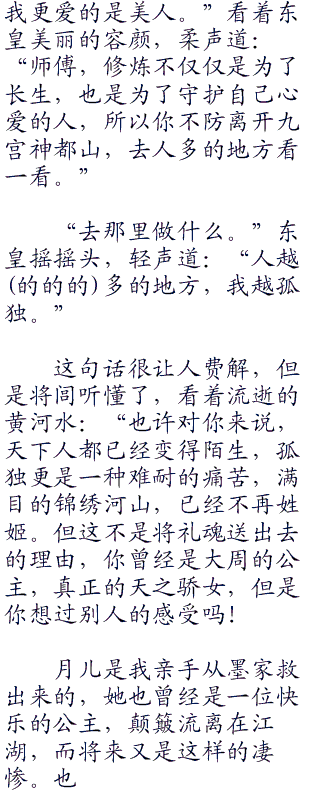 我更爱的是美人。”看着东
皇美丽的容颜，柔声道：
“师傅，修炼不仅仅是为了
长生，也是为了守护自己心
爱的人，所以你不防离开九
宫神都山，去人多的地方看
一看。”
“去那里做什么。”东
皇摇摇头，轻声道：“人越
(的的的)多的地方，我越孤
独。”
这句话很让人费解，但
是将闾听懂了，看着流逝的
黄河水：“也许对你来说，
天下人都已经变得陌生，孤
独更是一种难耐的痛苦，满
目的锦绣河山，已经不再姓
姬。但这不是将礼魂送出去
的理由，你曾经是大周的公
主，真正的天之骄女，但是
你想过别人的感受吗！
月儿是我亲手从墨家救
出来的，她也曾经是一位快
乐的公主，颠簸流离在江
湖，而将来又是这样的凄
惨。也